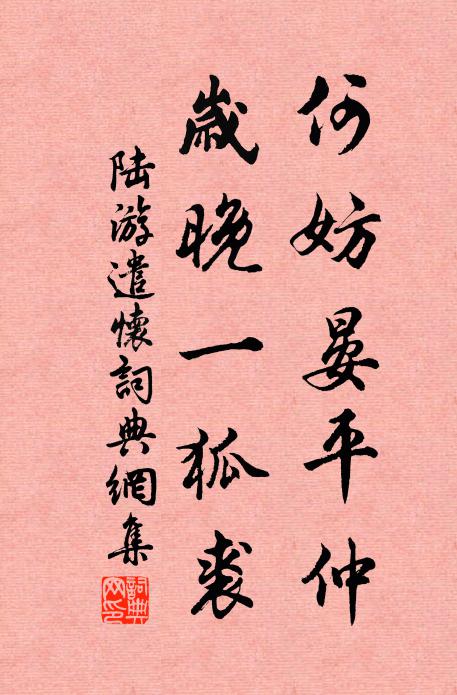 何妨晏平仲
歲晚一狐裘
陆游遣懷詞典網集
詞典
网印